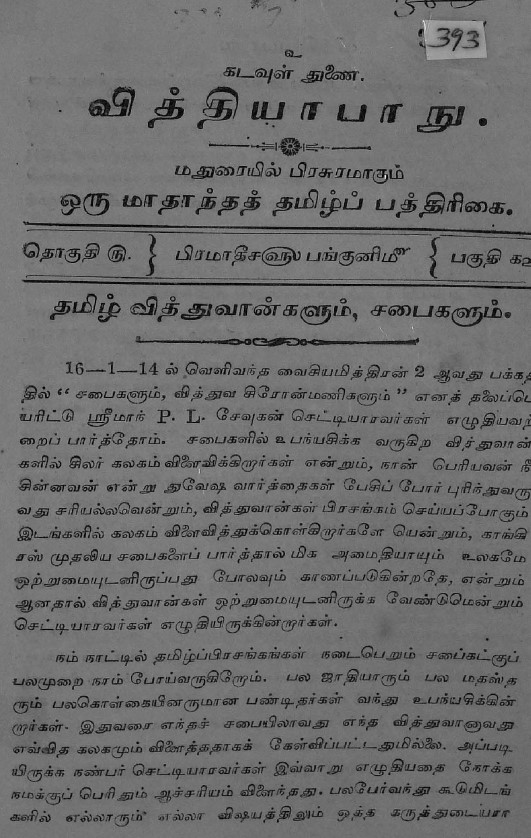 393
உ
கடவுள் துணை.
வித்தியாபாநு.
மதுரையில் பிரசுரமாகும்
ஒரு மாதாந்தத் தமிழ்ப் பத்திரிகை.
தொகுதி ௫. } பிரமாதீச௵ பங்குனிமீ { பகுதி
தமிழ் வித்துவான்களும், சபைகளும்.
16—1—14 ல் வெளிவந்த வைசியமித்திரன் 2 ஆவது பக்கத்
தில் “ சபைகளும், வித்துவ சிரோன்மணிகளும் ” எனத் தலைப்பெ
யரிட்டு ஸ்ரீமாந் P. L. சேவுகன் செட்டியாரவர்கள் எழுதியவற்
றைப் பார்த்தோம். சபைகளில் உபந்யசிக்க வருகிற வித்துவான்
களில் சிலர் கலகம் விளைவிக்கிறார்கள் என்றும், நான் பெரியவன் நீ
சின்னவன் என்று துவேஷ வார்த்தைகள் பேசிப் போர் புரிந்துவரு
வது சரியல்லவென்றும், வித்துவான்கள் பிரசங்கம் செய்யப்போகும்
இடங்களில் கலகம் விளைவித்துக்கொள்கிறார்களே யென்றும், காங்கி
ரஸ் முதலிய சபைகளைப் பார்த்தால் மிக அமைதியாயும் உலகமே
ஒற்றுமையுடனிருப்பது போலவும் காணப்படுகின்றதே, என்றும்
ஆனதால் வித்துவான்கள் ஒற்றுமையுடனிருக்க வேண்டுமென்றும்
செட்டியாரவர்கள் எழுதியிருக்கின்றார்கள்.
நம் நாட்டில் தமிழ்ப்பிரசங்கங்கள் நடைபெறும் சபைகட்குப்
பலமுறை நாம் போய்வருகிறோம். பல ஜாதியாரும் பல மதஸ்த
ரும் பலகொள்கையினருமான பண்டிதர்கள் வந்து உபந்யசிக்கின்
றார்கள். இதுவரை எந்தச் சபையிலாவது எந்த வித்துவானாவது
எவ்வித கலகமும் விளைத்ததாகக் கேள்விப்பட்டதுமில்லை. அப்படி
யிருக்க நண்பர் செட்டியாரவர்கள் இவ்வாறு எழுதியதை நோக்க
நமக்குப் பெரிதும் ஆச்சரியம் விளைந்தது. பலபேர்வந்து கூடுமிடங்
களில் எல்லாரும் எல்லா விஷயத்திலும் ஒத்த கருத்துடையரா